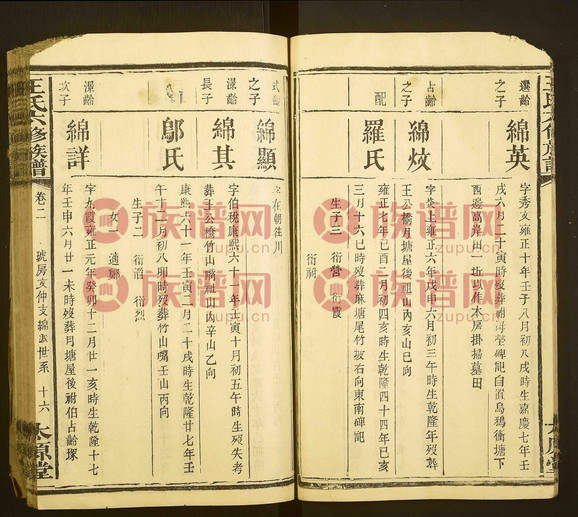 選齡
之子
綿英
字秀文雍正十年壬子八月初八戌時生嘉慶七年壬
戌六月二十寅時歿葬祖母塋碑記自置烏鴉衝塘下
西邊高岸田一坵以作木房掛掃墓田
占齡
之子
綿炆
字炎上雍正六年戊申六月初三午時生乾隆年歿葬
王公橋月塘屋後祖山內亥山巳向
配
羅氏
雍正七年己酉二月初四亥時生乾隆四十四年己亥
三月十六巳時歿葬麻塘尾竹坡右向東南碑記
生子三 衍營 衍霞
衍嗣
式齡
之子
綿顯
字在朝往川
濚齡
長子
綿其
字伯稅康熙六十一年壬寅十月初五午時生歿失考
葬王公橋竹山嘴祖山內辛山乙向
鄔氏
康熙六十一年壬寅二月二十戌時生乾隆廿七年壬
午十二月初八卯時歿葬竹山嘴壬山丙向
生子二 衍滔 衍烈
女一 適鄭
濚齡
次子
綿詳
字九霞雍正元年癸卯十二月廿一亥時生乾隆十七
年壬申六月廿一未時歿葬月塘屋後祔伯占齡塚
王氏六修族譜
卷二
號房友仲支綿派世系
十六
太原堂
族谱网
zupu.cn